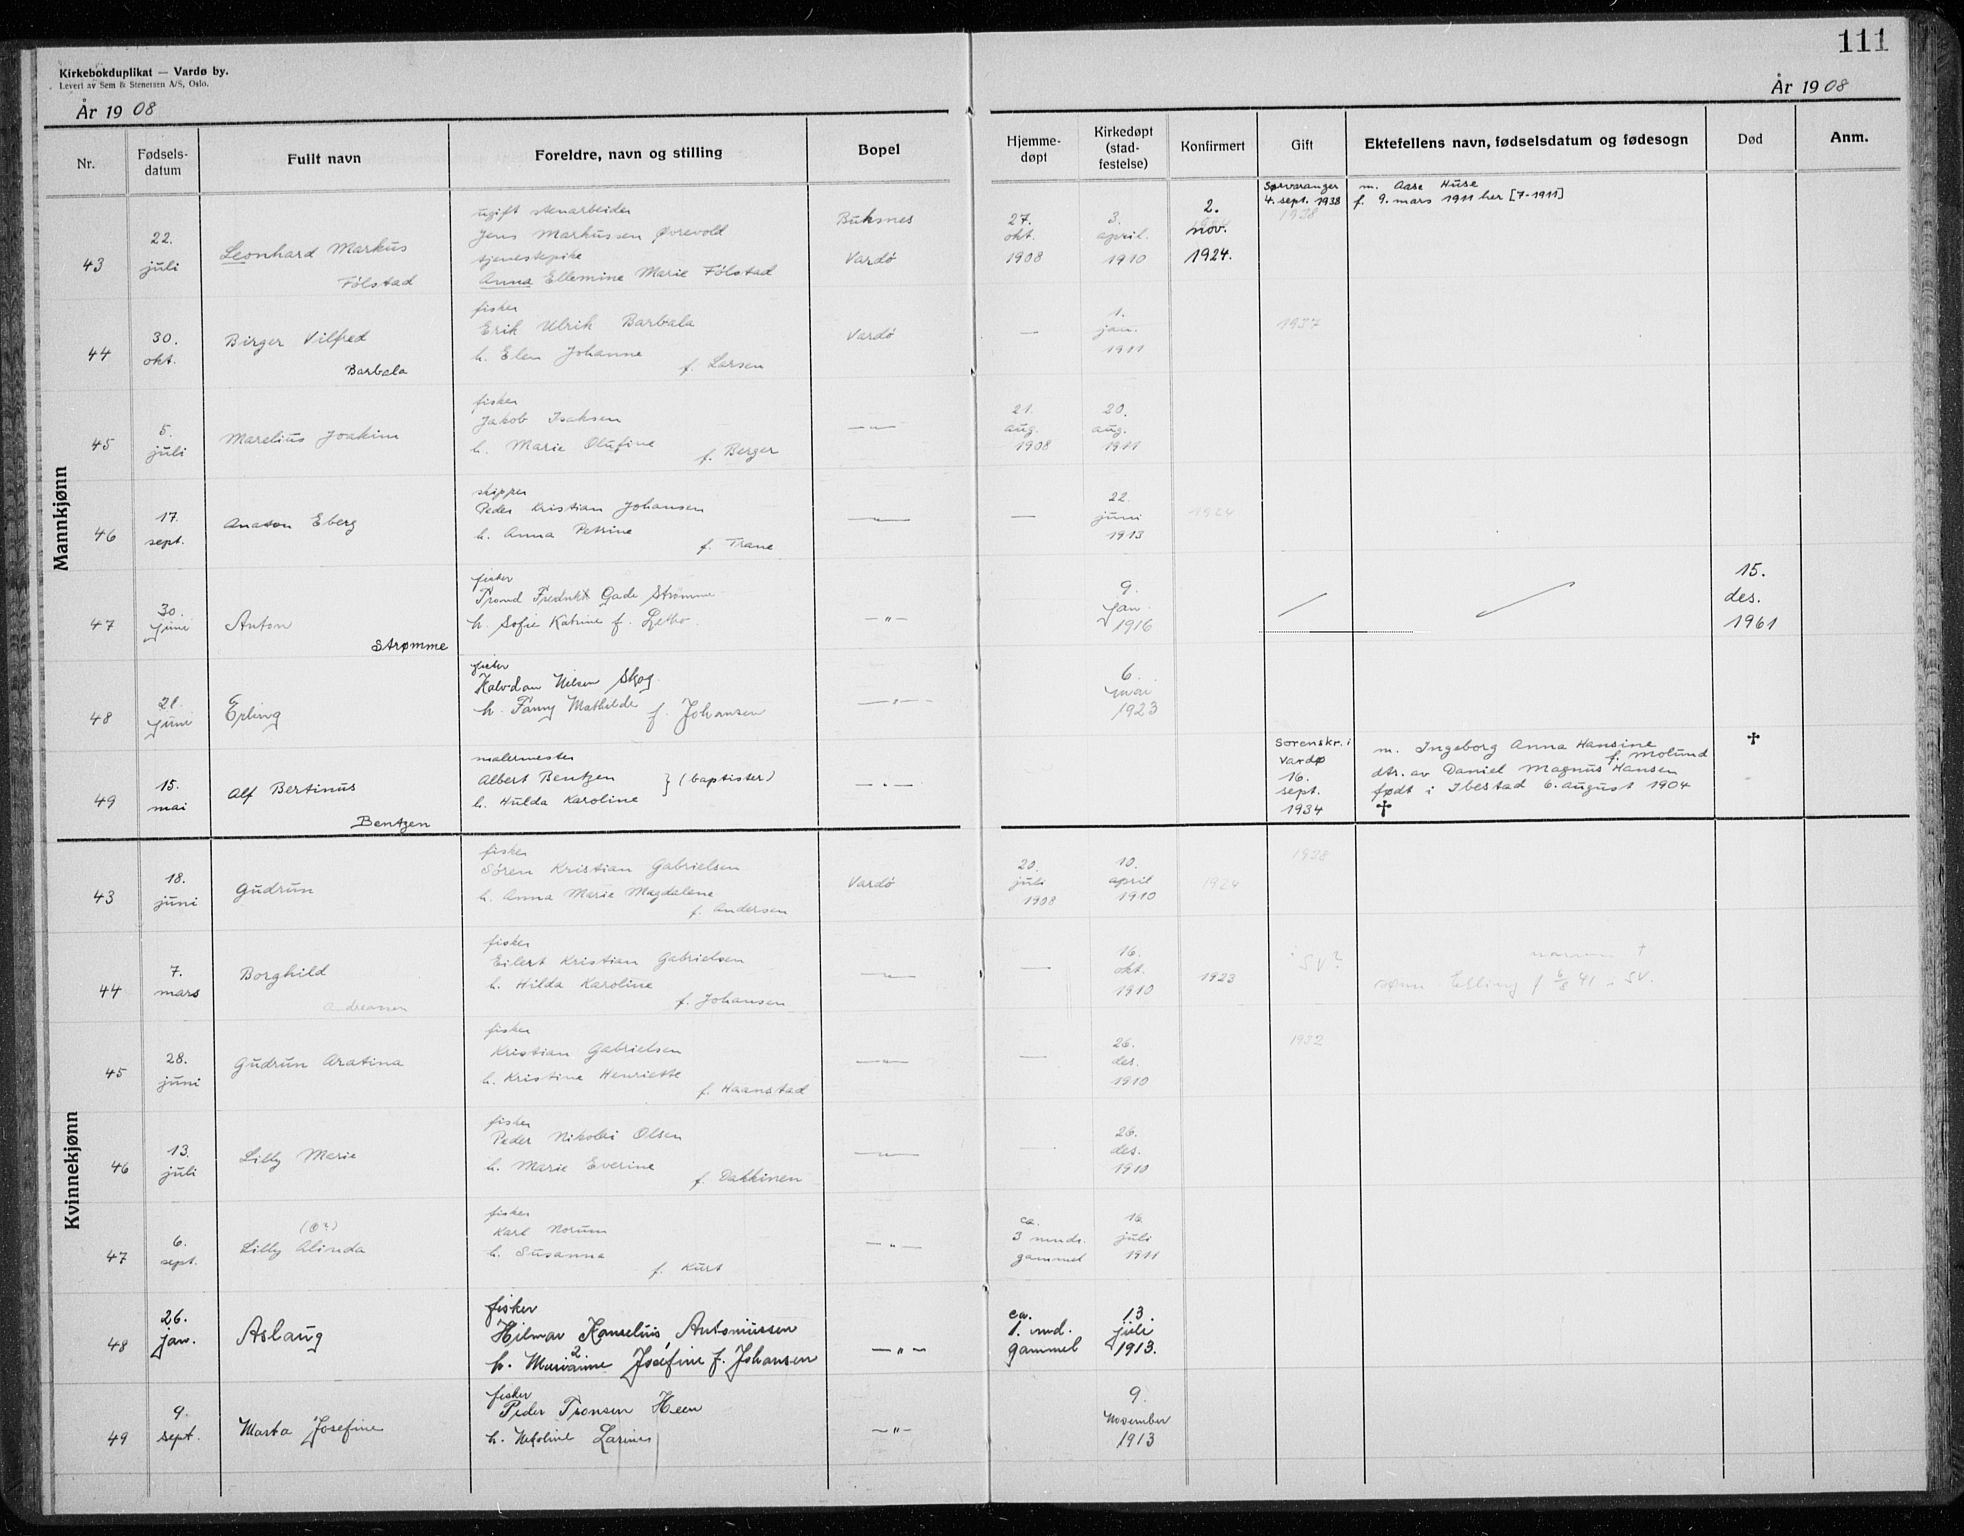 111
Kirkebokduplikat — Vardø by.
Levert av Sem & Stenersen A/S, Oslo.
År 1908
År 1908
Nr.
Fødsels-
datum
Fullt navn
Foreldre, navn og stilling
Bopel
Hjemme-
døpt
Kirkedøpt
(stad-
festelse)
Konfirmert
Gift
Ektefellens navn, fødselsdatum og fødesogn
Død
Anm.
Mannkjønn
43
22.
juli
Leonhard Markus
Fölstad
ugift stenarbeider
Jens Markussen Övrevold
tjenestepike
Anna Ellemine Marie Fölstad
Buksnes
Vardö
27.
okt.
1908
3.
april.
1910
2.
nov.
1924.
Sørvaranger
4. sept. 1938
1938
m. Aase Huse
f. 9. mars 1911 her [7-1911]
44
30.
okt.
Birger Vilfred
Barbala
fisker
Erik Ulrik Barbala
h. Elen Johanne
f. Larsen
Vardö
—
1.
jan.
1911
1937
45
5.
juli
Marelius Joakim
fisker
Jakob Isaksen
h. Marie Olufine
f. Berger
—"—
21.
aug.
1908
20.
aug.
1911
46
17.
sept.
Anaton Eberg
skipper
Peder Kristian Johansen
h. Anna Petrine
f. Trane
—"—
—
22.
juni
1913
1924
47
30.
juni
Anton
Strømme
fisker
Trond Fredrikt Gade Strømme
h. Sofie Katrine f.
—"—
9.
Jan.
1916
15.
des.
1961
48
21.
juni
Erling
fisker
Halvdan Nilsen Skog.
h. Fanny Mathilde f. Johansen
—"—
6.
mai
1923
49
15.
mai
Alf Bertinus
Bentzen
malermester
Albert Bentzen
h. Hulda Karoline } (baptister)
—"—
Sorenskr. i
Vardø
16.
sept.
1934
m. Ingeborg Anna Hansine
f. Molund
dtr. av Daniel Magnus Hansen
født i Ibestad 6. august 1904
✝
✝
Kvinnekjønn
43
18.
juni
Gudrun
fisker
Sören Kristian Gabrielsen
h. Anna Marie Magdalene
f. Andersen
Vardö
20.
juli
1908
10.
april
1910
1924
1928
44
7.
mars
Borghild
Andreassen
fisker
Eilert Kristian Gabrielsen
h. Hilda Karoline
f. Johansen
—"—
—
16.
okt.
1910
1923
SV?
sønn Elling f 6/8 41 i SV.
45
28.
juni
Gudrun Aratina
fisker
Kristian Gabrielsen
h. Kristine Henriette
f. Haanstad
—"—
—
26.
des.
1910
1932
46
13.
juli
Lilly Marie
fisker
Peder Nikolai Olsen
h. Marie Everine
f. Dakkinen
—"—
—
26.
des.
1910
47
6.
sept.
(O?)
Lilly Alinda
fisker
Karl Norum
h. Susanna
f. Kurt
—"—
ca.
3 mndr.
gammel
16.
juli
1911
48
26.
jan.
Aslaug
fisker
Hilmar Konselius Antoniussen
h. Marianne Josefine f. Johansen
—"—
ca.
1. md.
gammel
13.
juli
1913.
49
9.
sept.
Marta Josefine
fisker
Peder Tronsen Heen
h. Nekoline
—"—
9.
November
1913